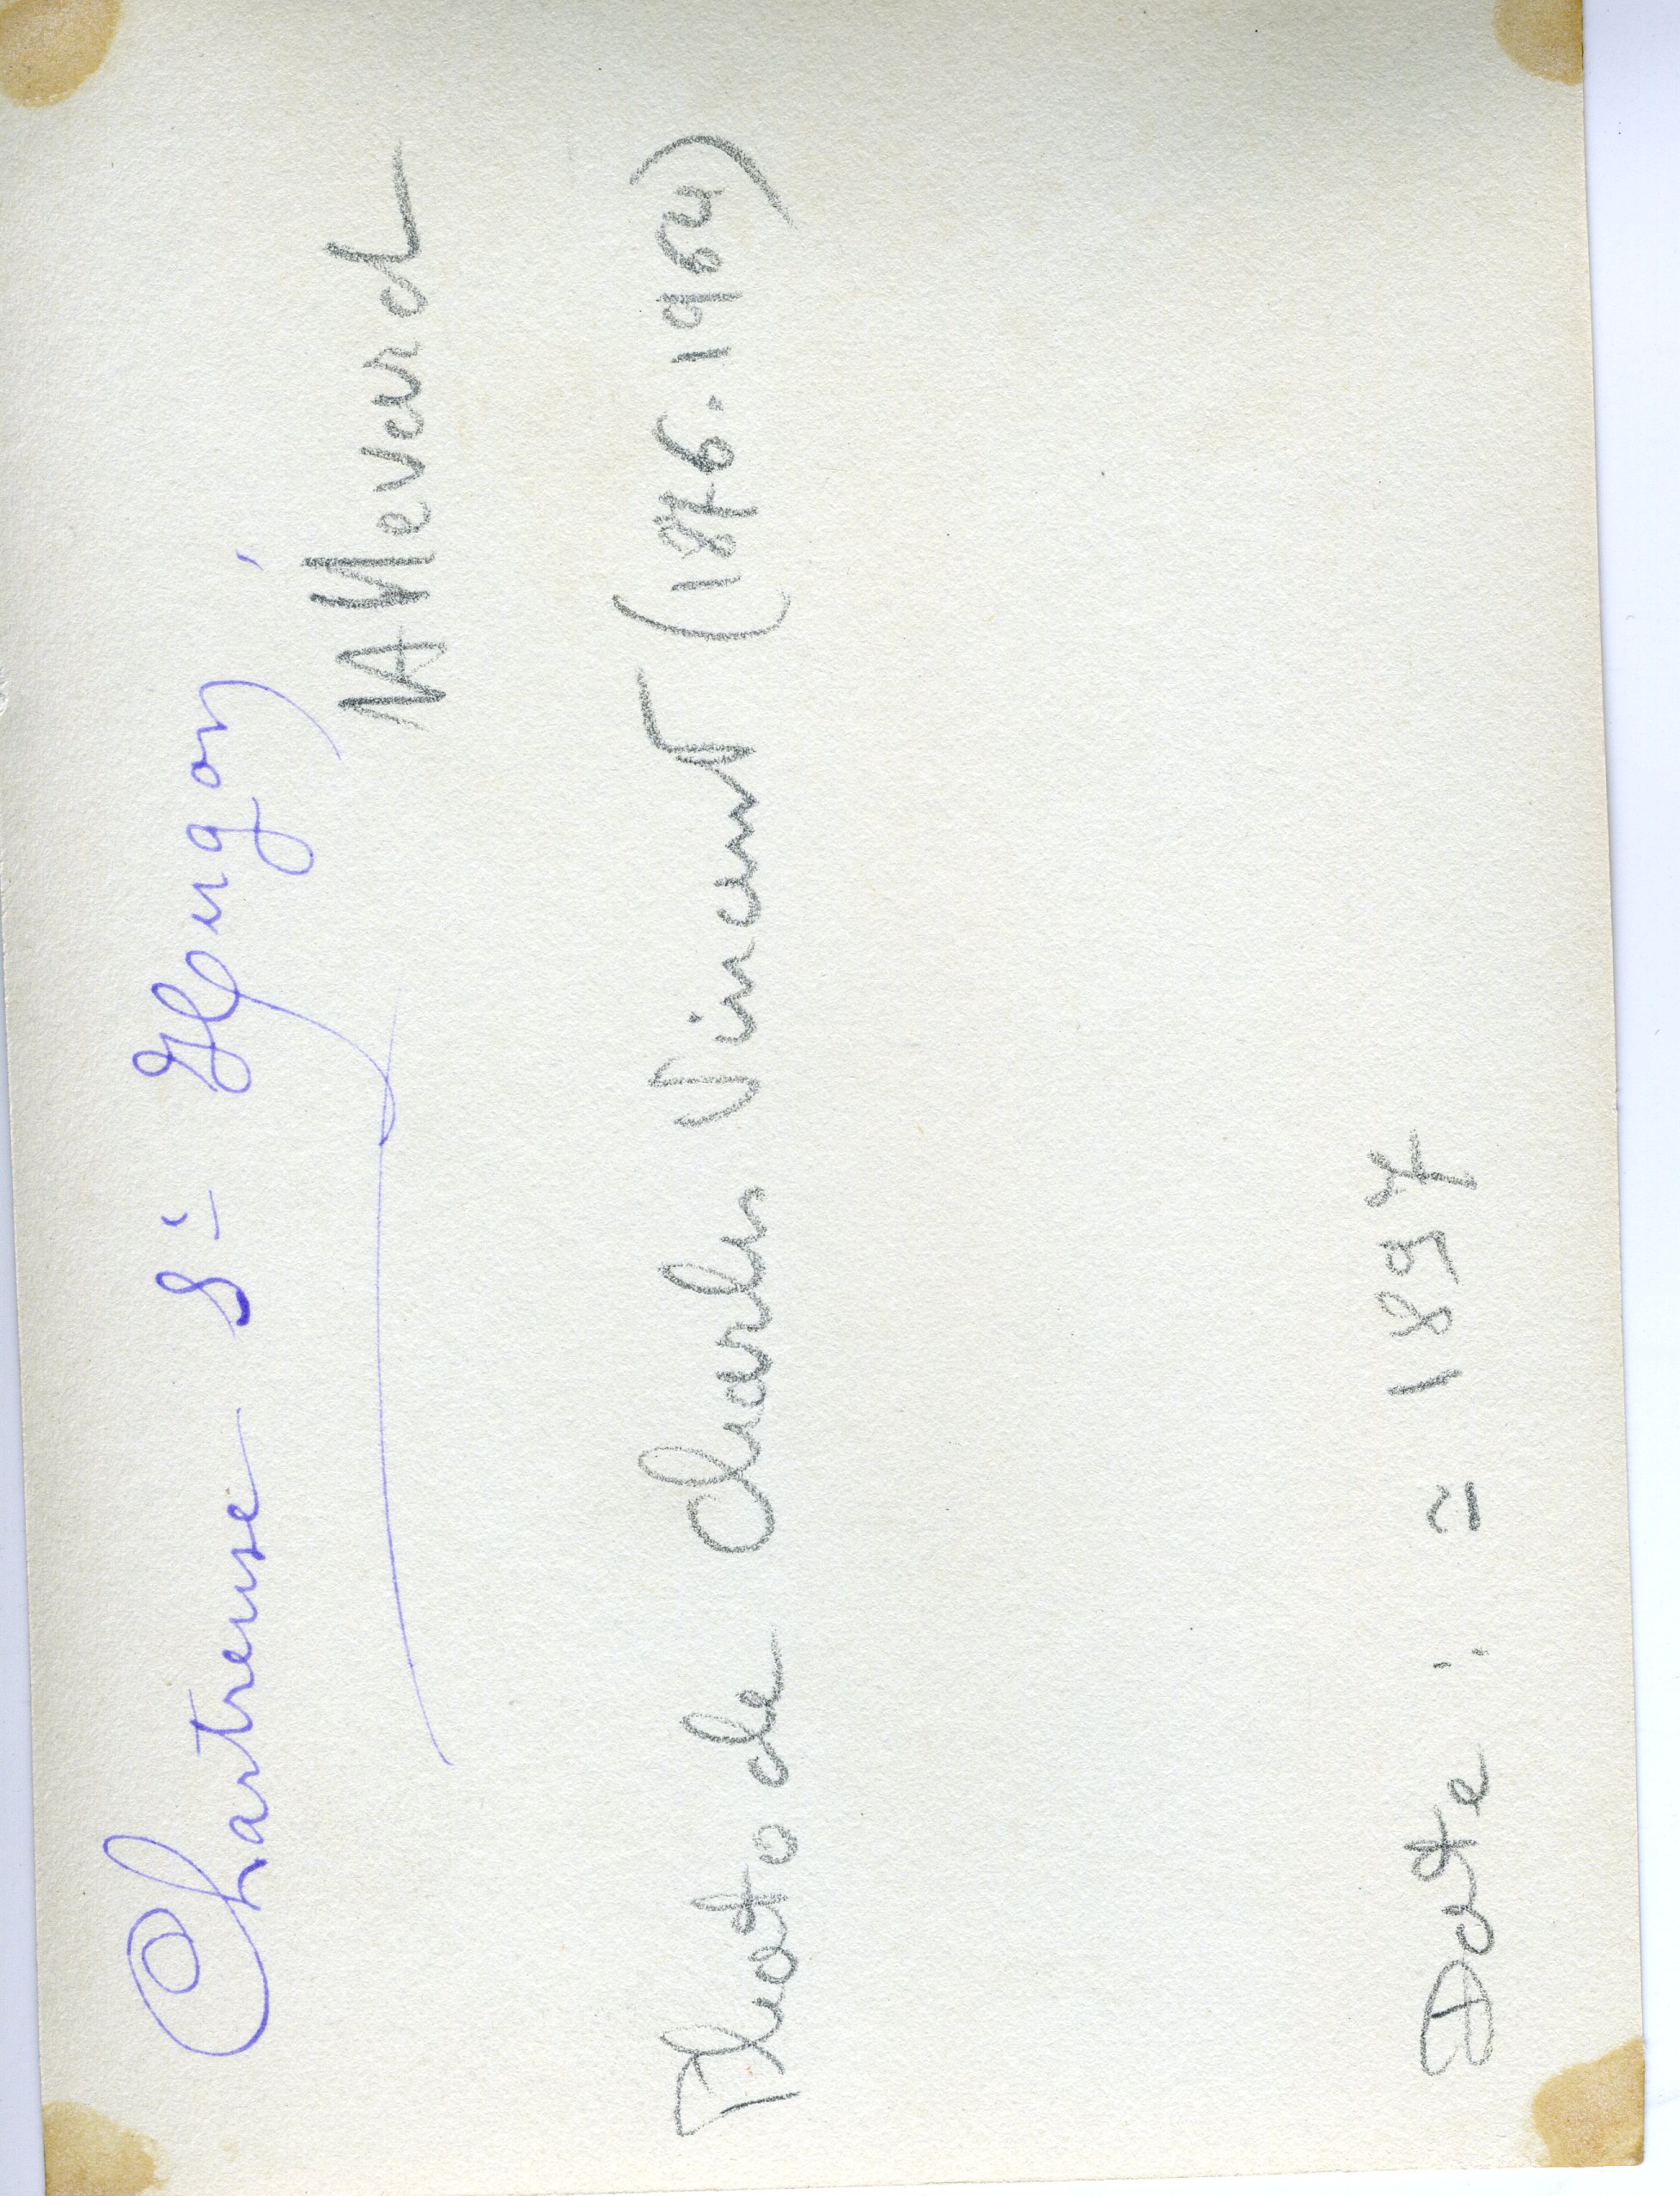 Chartreuse St Hugon
Photo de Charles Vincent (1876.1964)
Date : = 1897